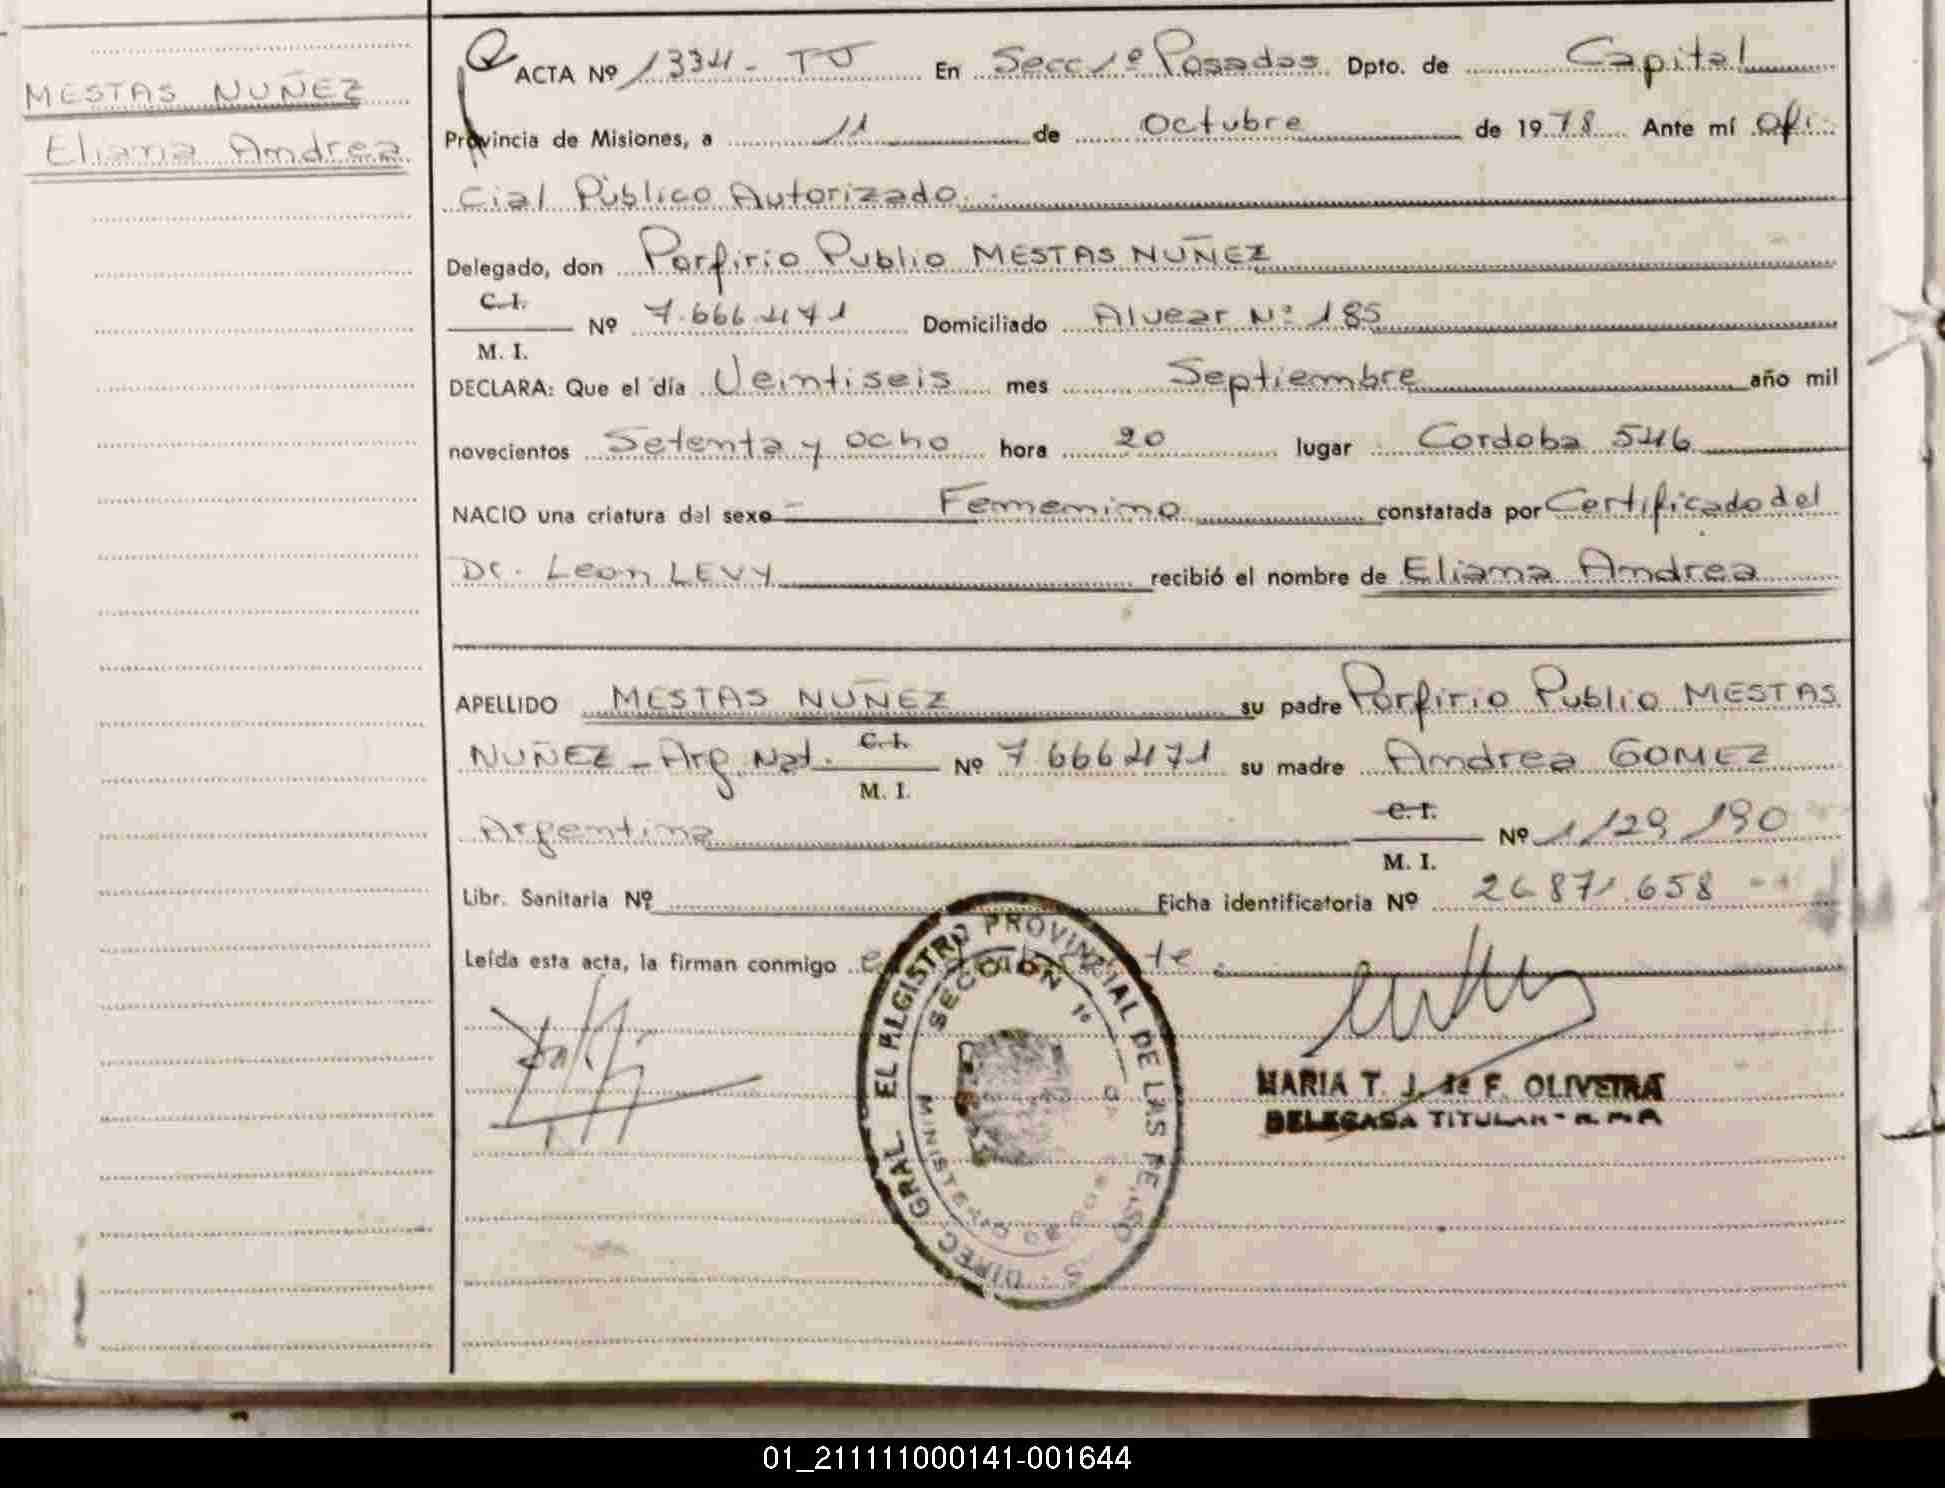 MESTAS NUÑEZ
Eliana Andrea
ACTA Nº 1334 - TJ En Secc 1º Posadas Dpto. de Capital
Provincia de Misiones, a 11 de Octubre de 1978 Ante mí Ofi-
cial Público Autorizado.
Delegado, don Porfirio Publio MESTAS NUÑEZ
C.I.
M. I.
Nº 7.666.471 Domiciliado Alvear Nº 185
DECLARA: Que el día Veintiseis mes Septiembre año mil
novecientos Setenta y ocho hora 20 lugar Cordoba 546
NACIO una criatura del sexo Femenino constatada por Certificado del
Dr. Leon LEVY recibió el nombre de Eliana Andrea
APELLIDO MESTAS NUÑEZ su padre Porfirio Publio MESTAS
NUÑEZ - Arg. Nat. C.I. M. I. Nº 7 666 471 su madre Andrea GOMEZ
Argentina C.I. M. I. Nº 1129190
Libr. Sanitaria Nº Ficha identificatoria Nº 26871.658
Leída esta acta, la firman conmigo
DIREC GRAL. EL REGISTRO PROVINCIAL DE LAS PE
SECCION 1º
MINISTERIO
MARIA T. J. de F. OLIVEIRA
DELEGADA TITULAR - R. P. P.
01_211111000141-001644